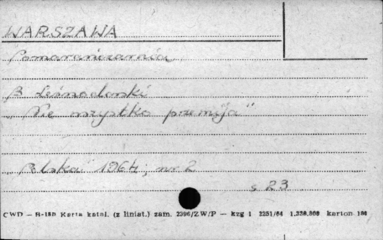 WARSZAWA
Pomarańczarnia
B. Leśnodorski
"Nie wszystko przemija"
"Polska" 1964, nr 2
s 23
CWD — B-159 Karta katal. (z liniat.) zam. 2296/Z.W/P — kzg 1 2251/64 1,250,000 karton 180